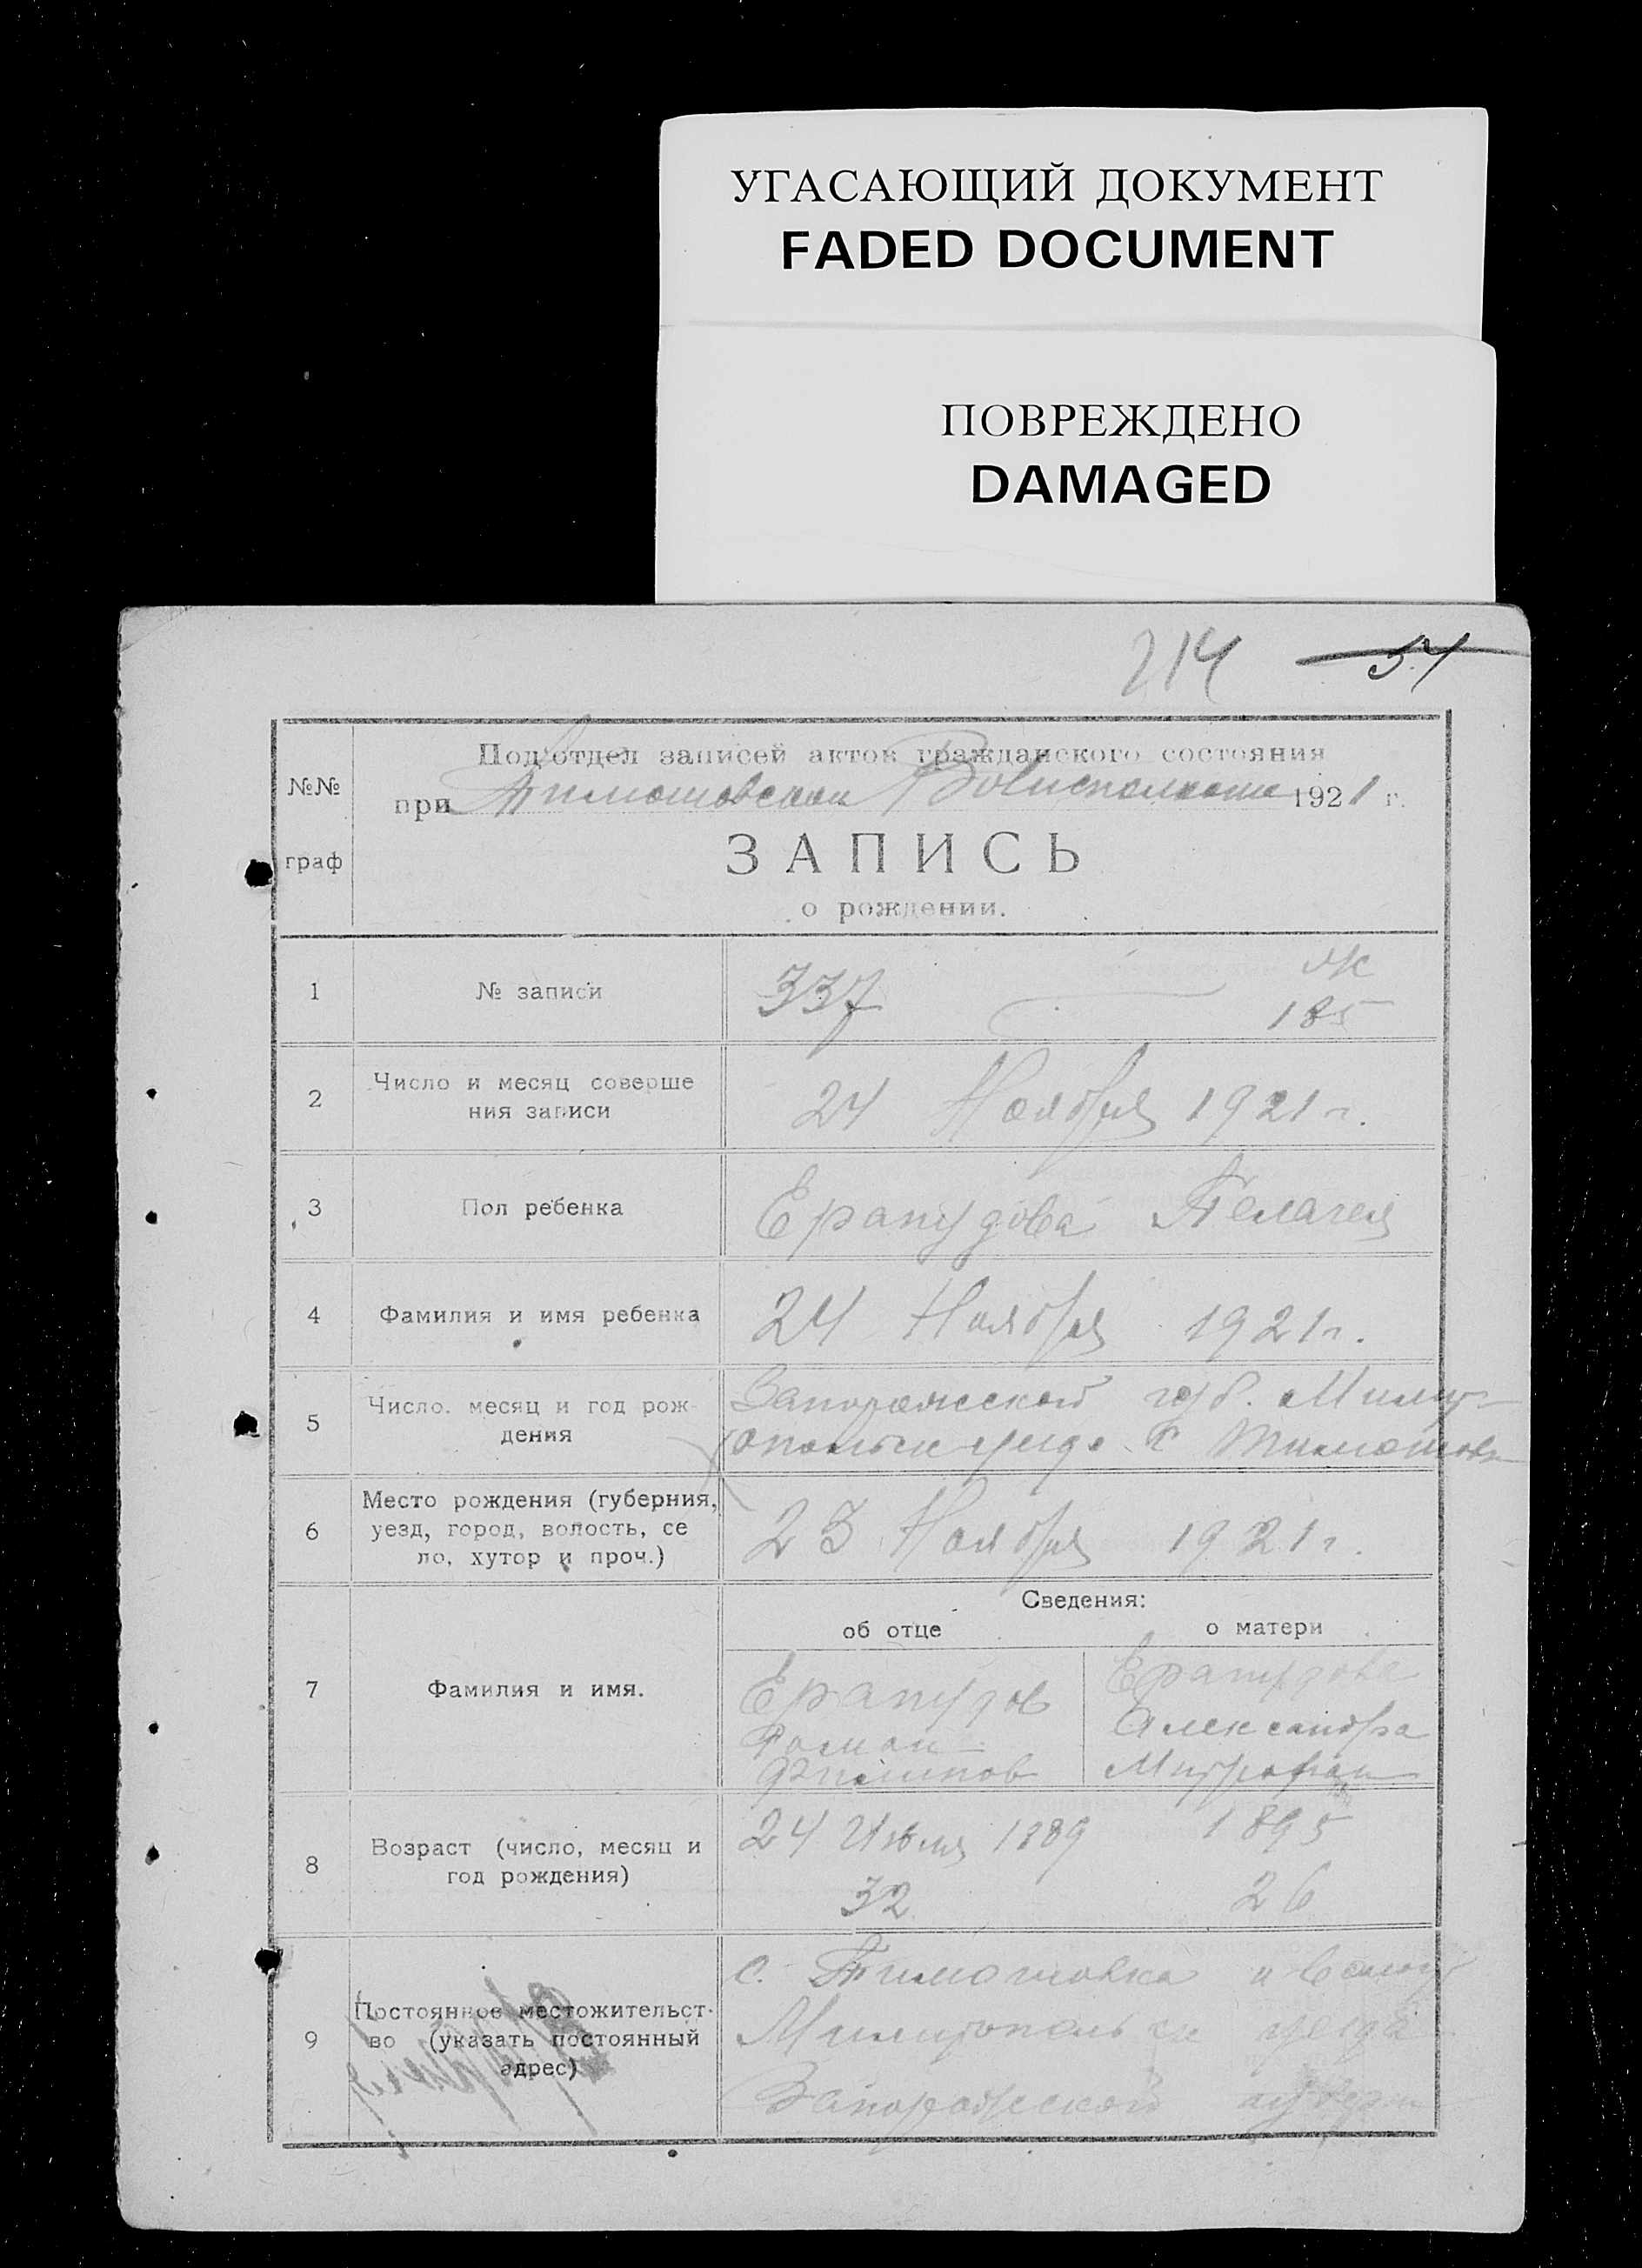 УГАСАЮЩИЙ ДОКУМЕНТ
FADED DOCUMENT
ПОВРЕЖДЕНО
DAMAGED
214 54
Под'отдел записей актов гражданского состояния
№№
при Тимошовском Волисполкоме 1921 г.
граф
ЗАПИСЬ
о рождении.
1 № записи 337 Ж
185
2 Число и месяц соверше
ния записи
24 Ноября 1921 г.
3 Пол ребенка Ерапудова Пелагея
4 Фамилия и имя ребенка 24 Ноября 1921 г.
5 Число. месяц и год рож-
дения
Запорожской губ. Мили-
топольск уезд. с Тимошовк
6 Место рождения (губерния,
уезд, город, волость, се
ло, хутор и проч.)
23 Ноября 1921 г.
Сведения:
об отце о матери
7 Фамилия и имя.
Ерапудов
Роман
Филипов
Ерапудова
Александра
Митрофан
8 Возраст (число, месяц и
год рождения)
24 Июля 1889 1895
32 26
9 Постоянное местожительст-
во (указать постоянный
адрес)
с. Тимошовка и волост
Милитопольск уезда
Запорожской губерн